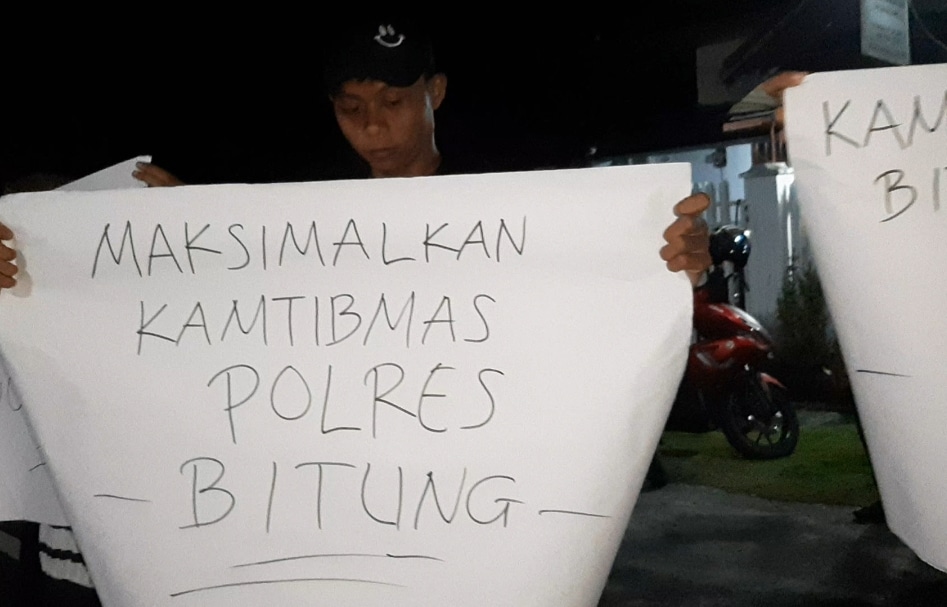 MAKSIMALKAN
KAMTIBMAS
POLRES
- BITUNG -
KAM
BI